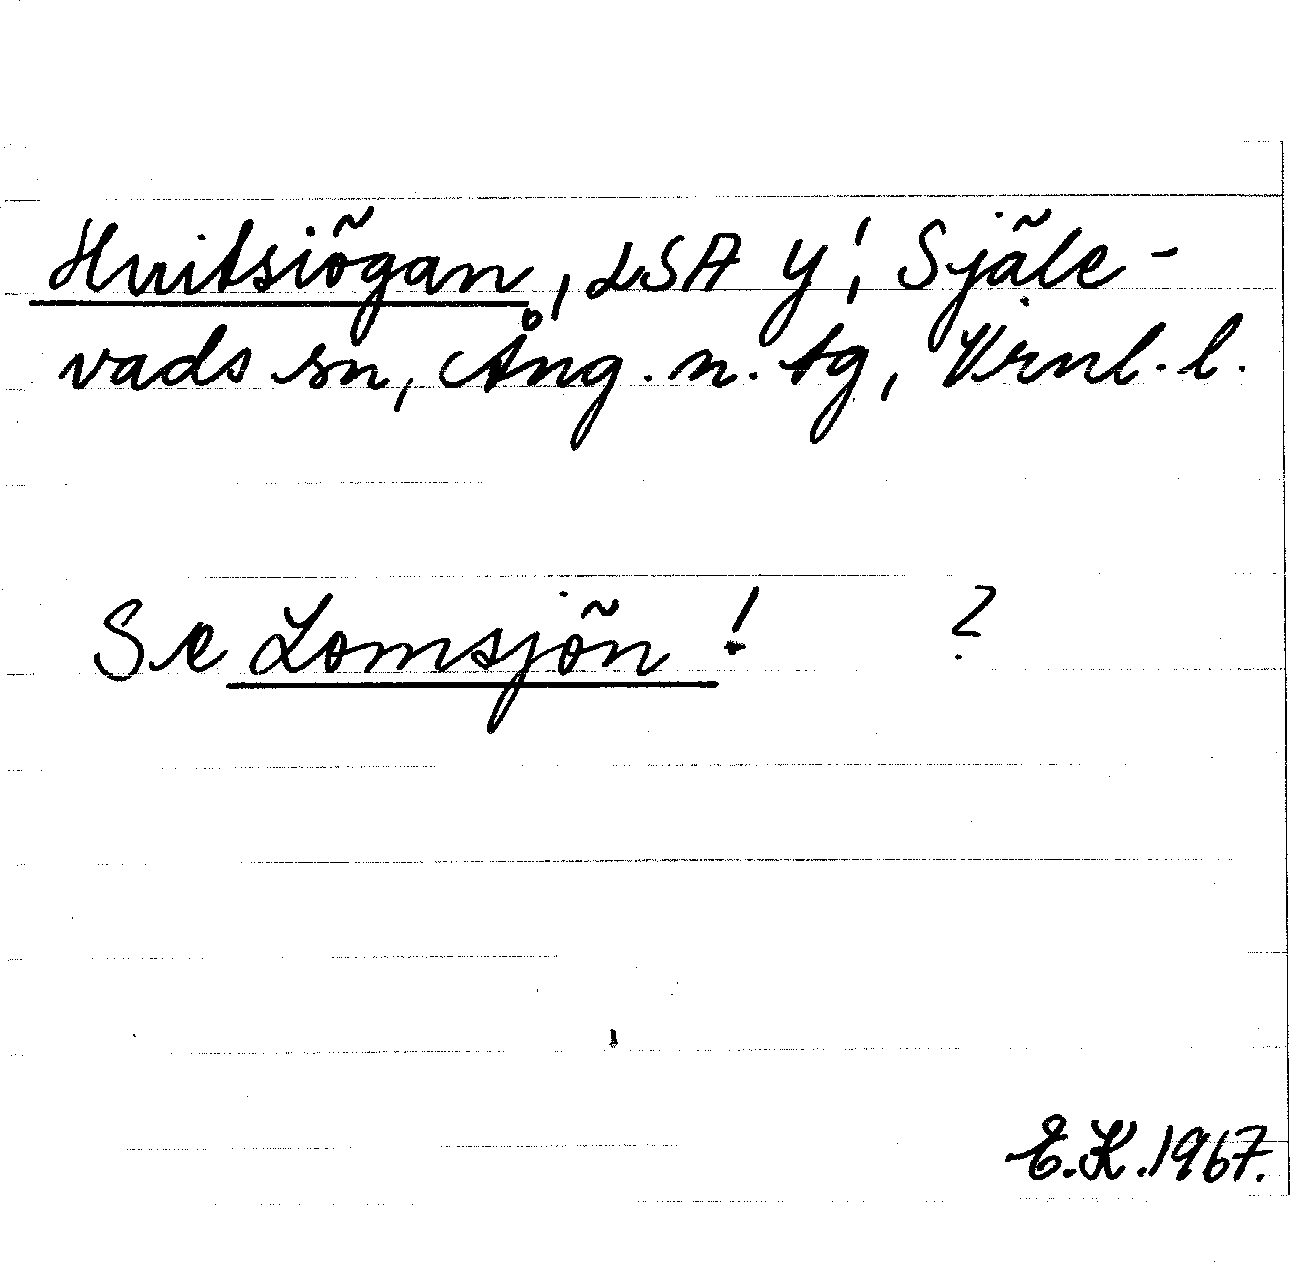 Hvitsiögan, LSA Y', Själe-
vads sn, Ång. n. tg, Vrnl. l.
Se Lomsjön! ?
E.K. 1967.